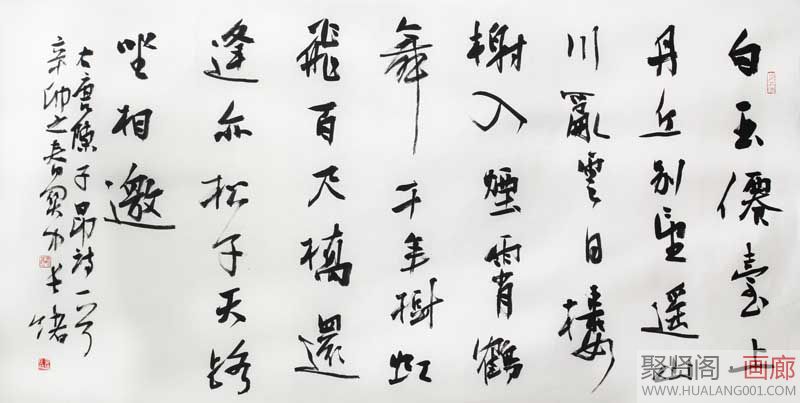 白玉僊臺古
丹丘别望遥山
川亂雲日樓
榭入煙霄鶴
舞千年樹虹
飛百尺橋還
逢赤松子天路
坐相邀
大唐陳子昂詩一首
辛卯之春
聚贤阁·画廊
WWW.HUALANG001.COM